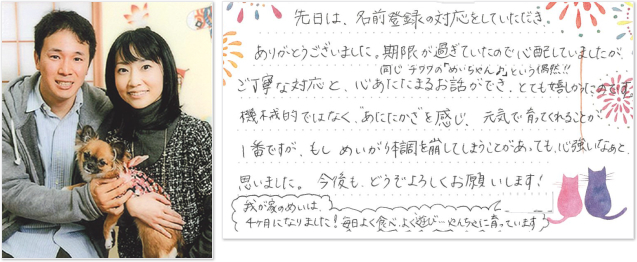 先日は、名前登録の対応をしていただき
ありがとうございました。期限が過ぎていたので心配していましたが
同じチワワの『めいちゃん♪』という偶然!!
ご丁寧な対応と、心あたたまるお話ができ、とても嬉しかったのです。
機械的ではなく、"あたたかさ"を感じ、元気で育ってくれることが
1番ですが、もし めいが体調を崩してしまうことがあっても、心強いなぁと
思いました。今後も、どうぞよろしくお願いします!
我が家のめいは、
4ヶ月になりました!毎日よく食べ、よく遊び…やんちゃに育っています